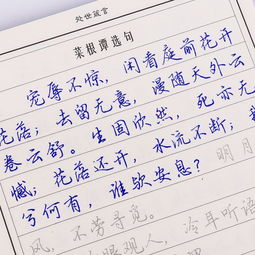 处世箴言
菜根谭选句
宠辱不惊，闲看庭前花开
花落；去留无意，漫随天外云
卷云舒。生固欣然，死亦无
憾；花落还开，水流不断；我
兮何有，谁欤安息？明月
风，不劳寻觅。
眼观人，冷耳听语